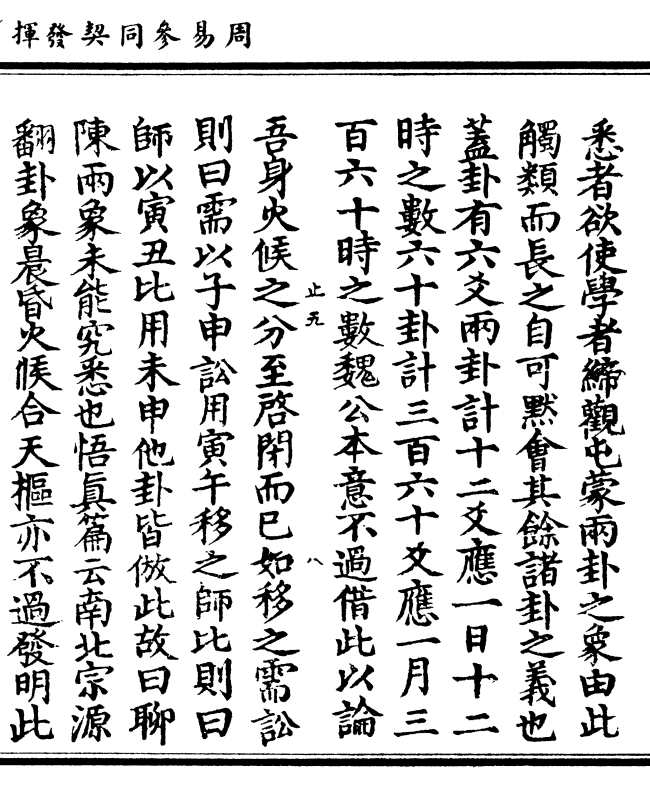 周易參同契發揮
悉者欲使學者締觀屯蒙兩卦之象由此
觸類而長之自可黙會其餘諸卦之義也
蓋卦有六爻兩卦計十二爻應一日十二
時之數六十卦計三百六十爻應一月三
百六十時之數魏公本意不過借此以論
止九 八
吾身火候之分至啓閉而已如移之需訟
則曰需以子申訟用寅午移之師比則曰
師以寅丑比用未申他卦皆倣此故曰聊
陳兩象未能究悉也悟眞篇云南北宗源
翻卦象晨昏火候合天樞亦不過發明此